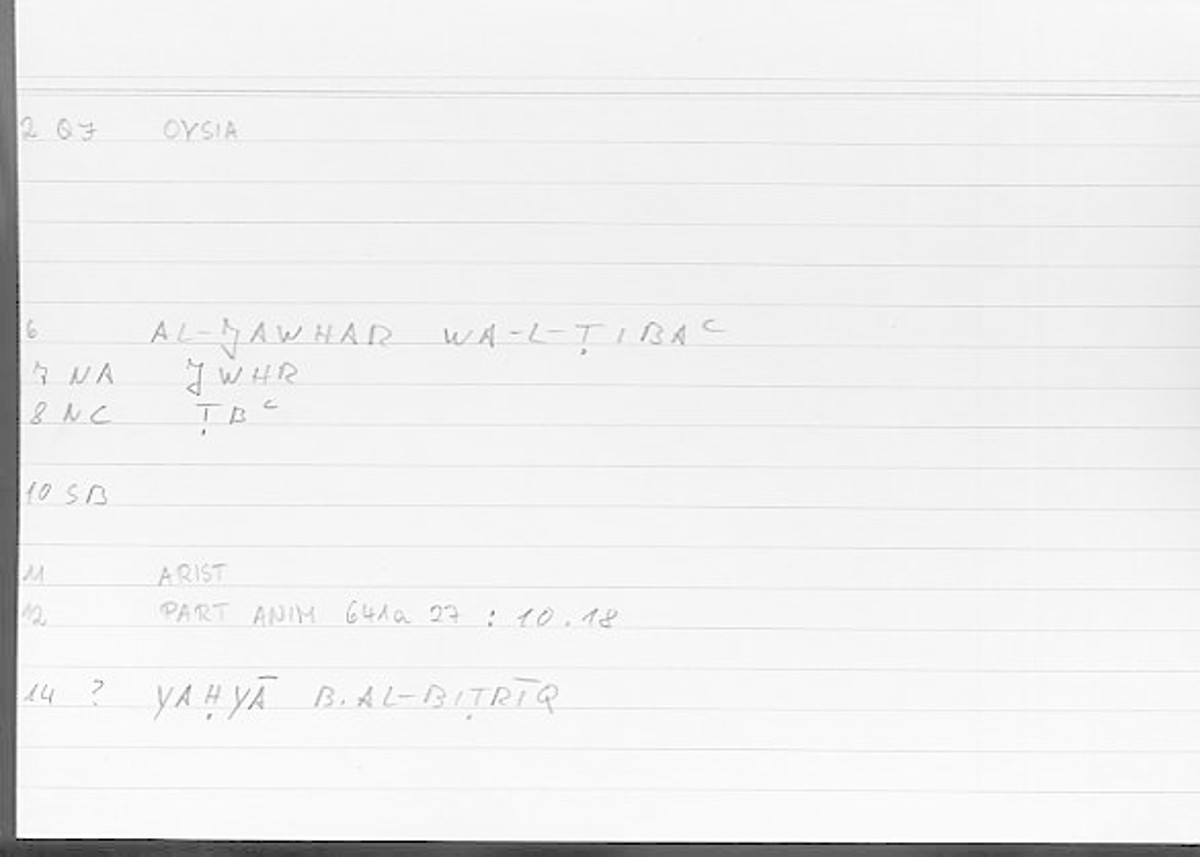 2 07 OYSIA
6 AL-JAWHAR WA-L-ṬIBAᶜ
7 NA JWHR
8 NC ṬBᶜ
10 SB
11 ARIST
12 PART ANIM 641a 27 : 10.18
14 ? YAḤYĀ B. AL-BIṬRĪQ